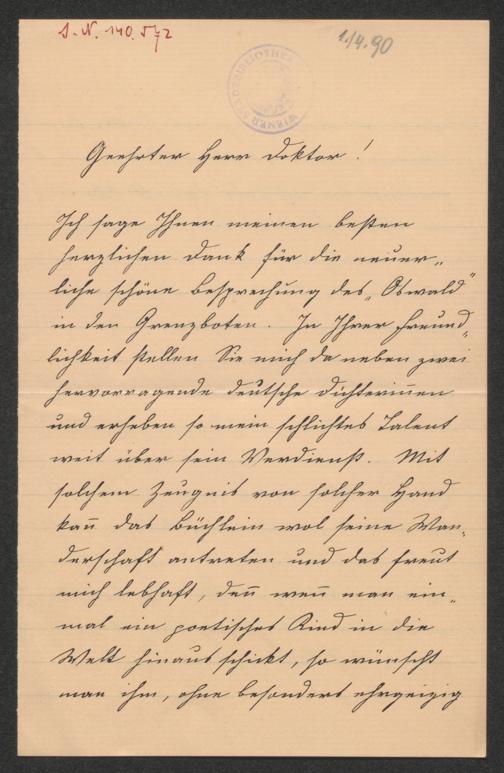 J. N. 140.572
1./4. 90
WIENER STADTBIBLIOTHEK
Geehrter Herr Doktor!
Ich sage Ihnen meinen besten
herzlichen Dank für die neuer„
liche schöne Besprechung des „Oswald"
in den Grenzboten. In Ihrer Freund„
lichkeit stellen Sie mich da neben zwei
hervorragende deutsche Dichterinnen
und erheben so mein schlichtes Talent
weit über sein Verdienst. Mit
solchem Zeugnis von solcher Hand
kan̄ das Büchlein wol seine Wan„
derschaft antreten und das freut
mich lebhaft, den̄ wen̄ man ein„
mal ein poetisches Kind in die
Welt hinaus schickt, so wünscht
man ihm, ohne besonders ehrgeizig